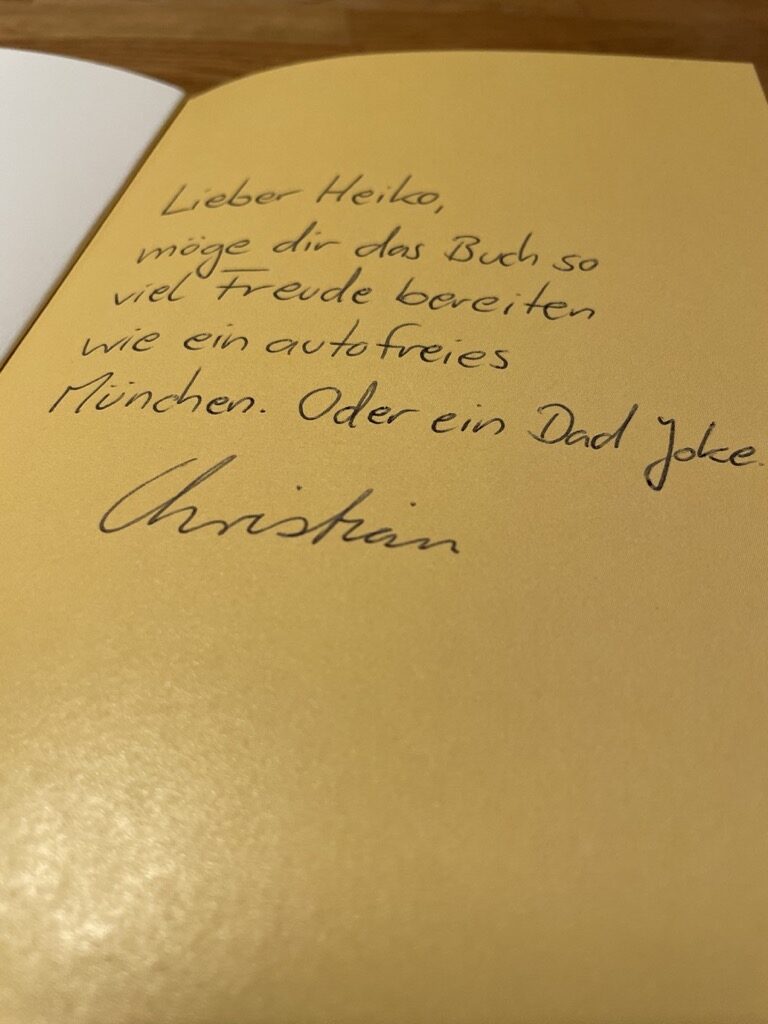 Lieber Heiko,
möge dir das Buch so
viel Freude bereiten
wie ein autofreies
München. Oder ein Dad Joke.
Christian